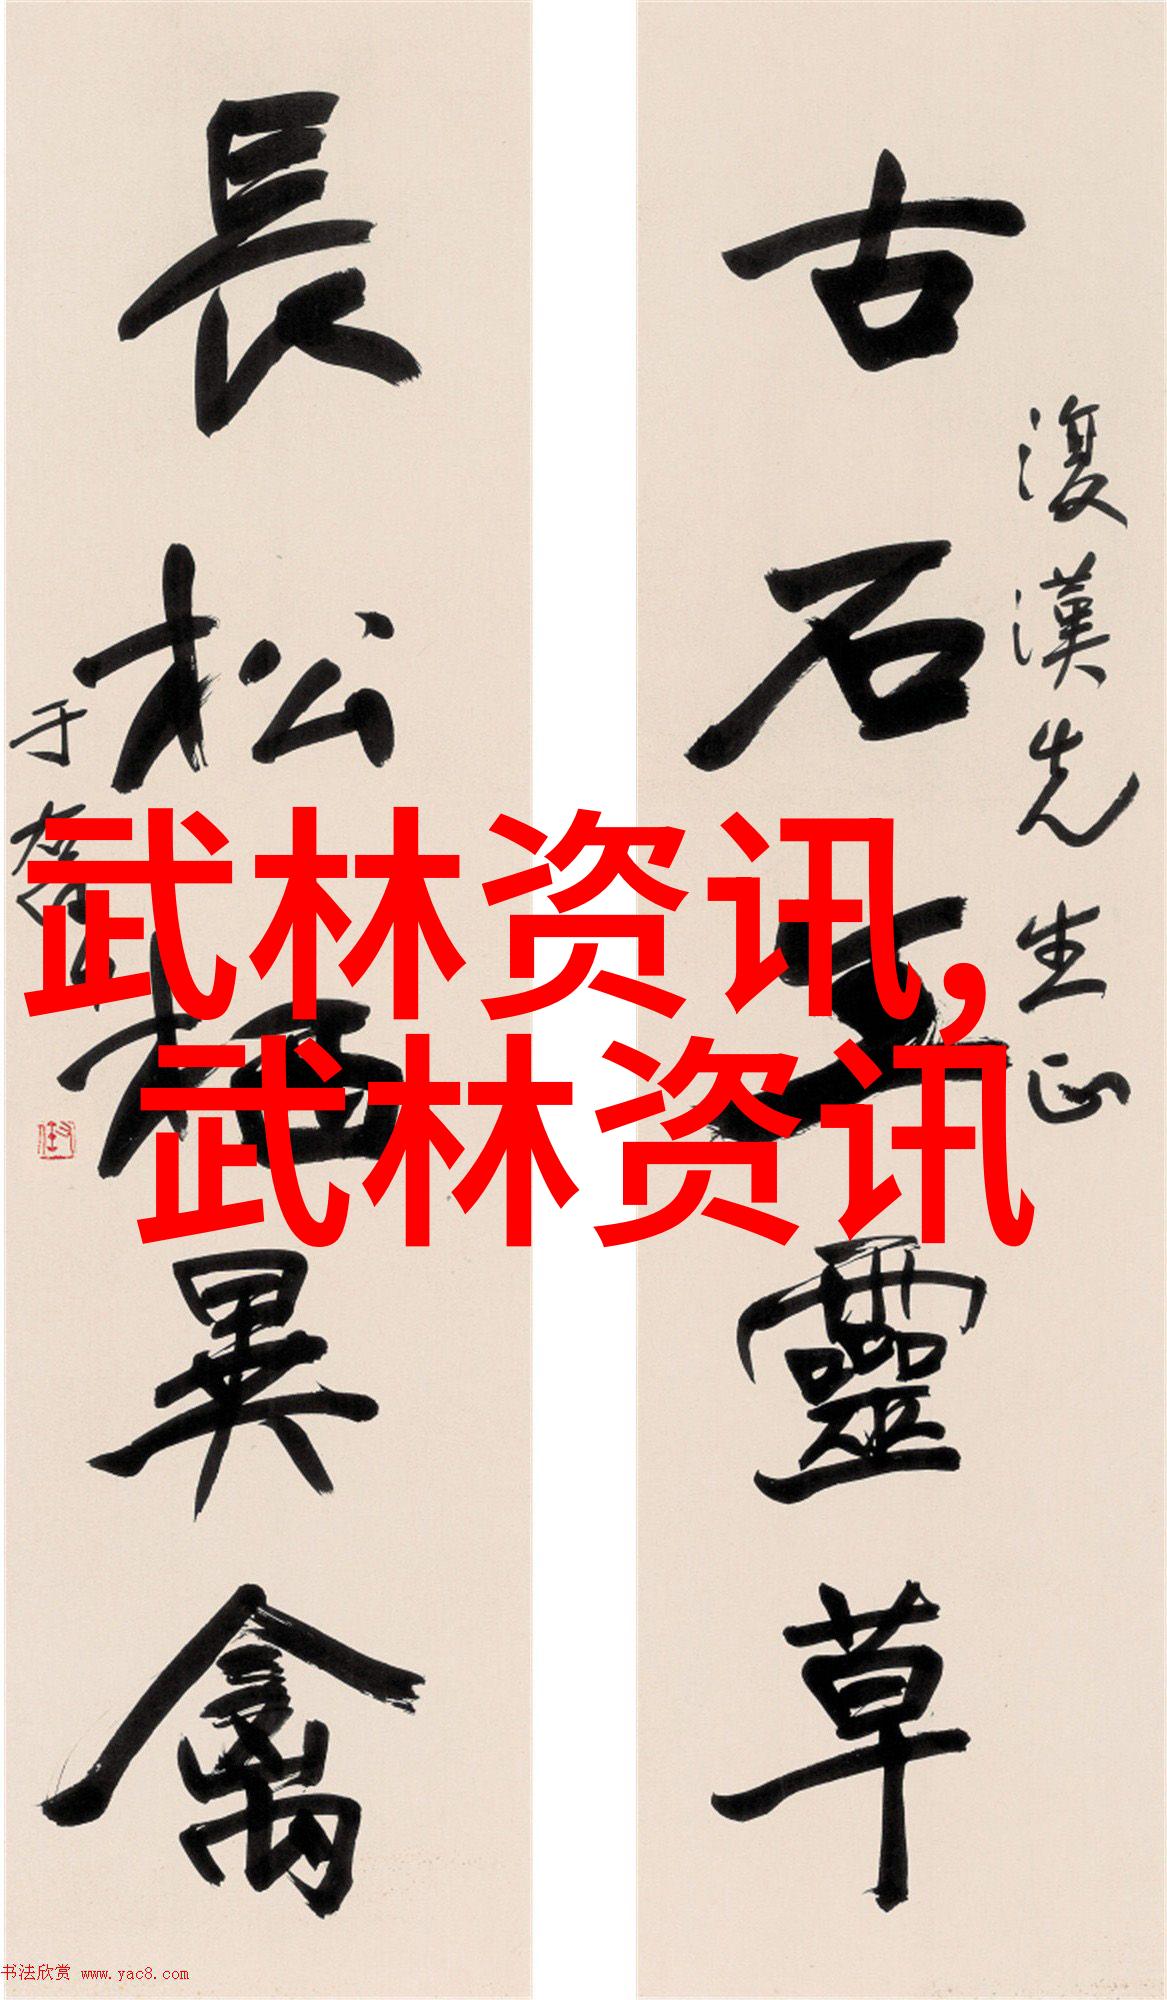 古石靈草
復漢先生正
長松栖異禽
于右任
武林资讯,
武林资讯
书法欣赏 www.yac8.com